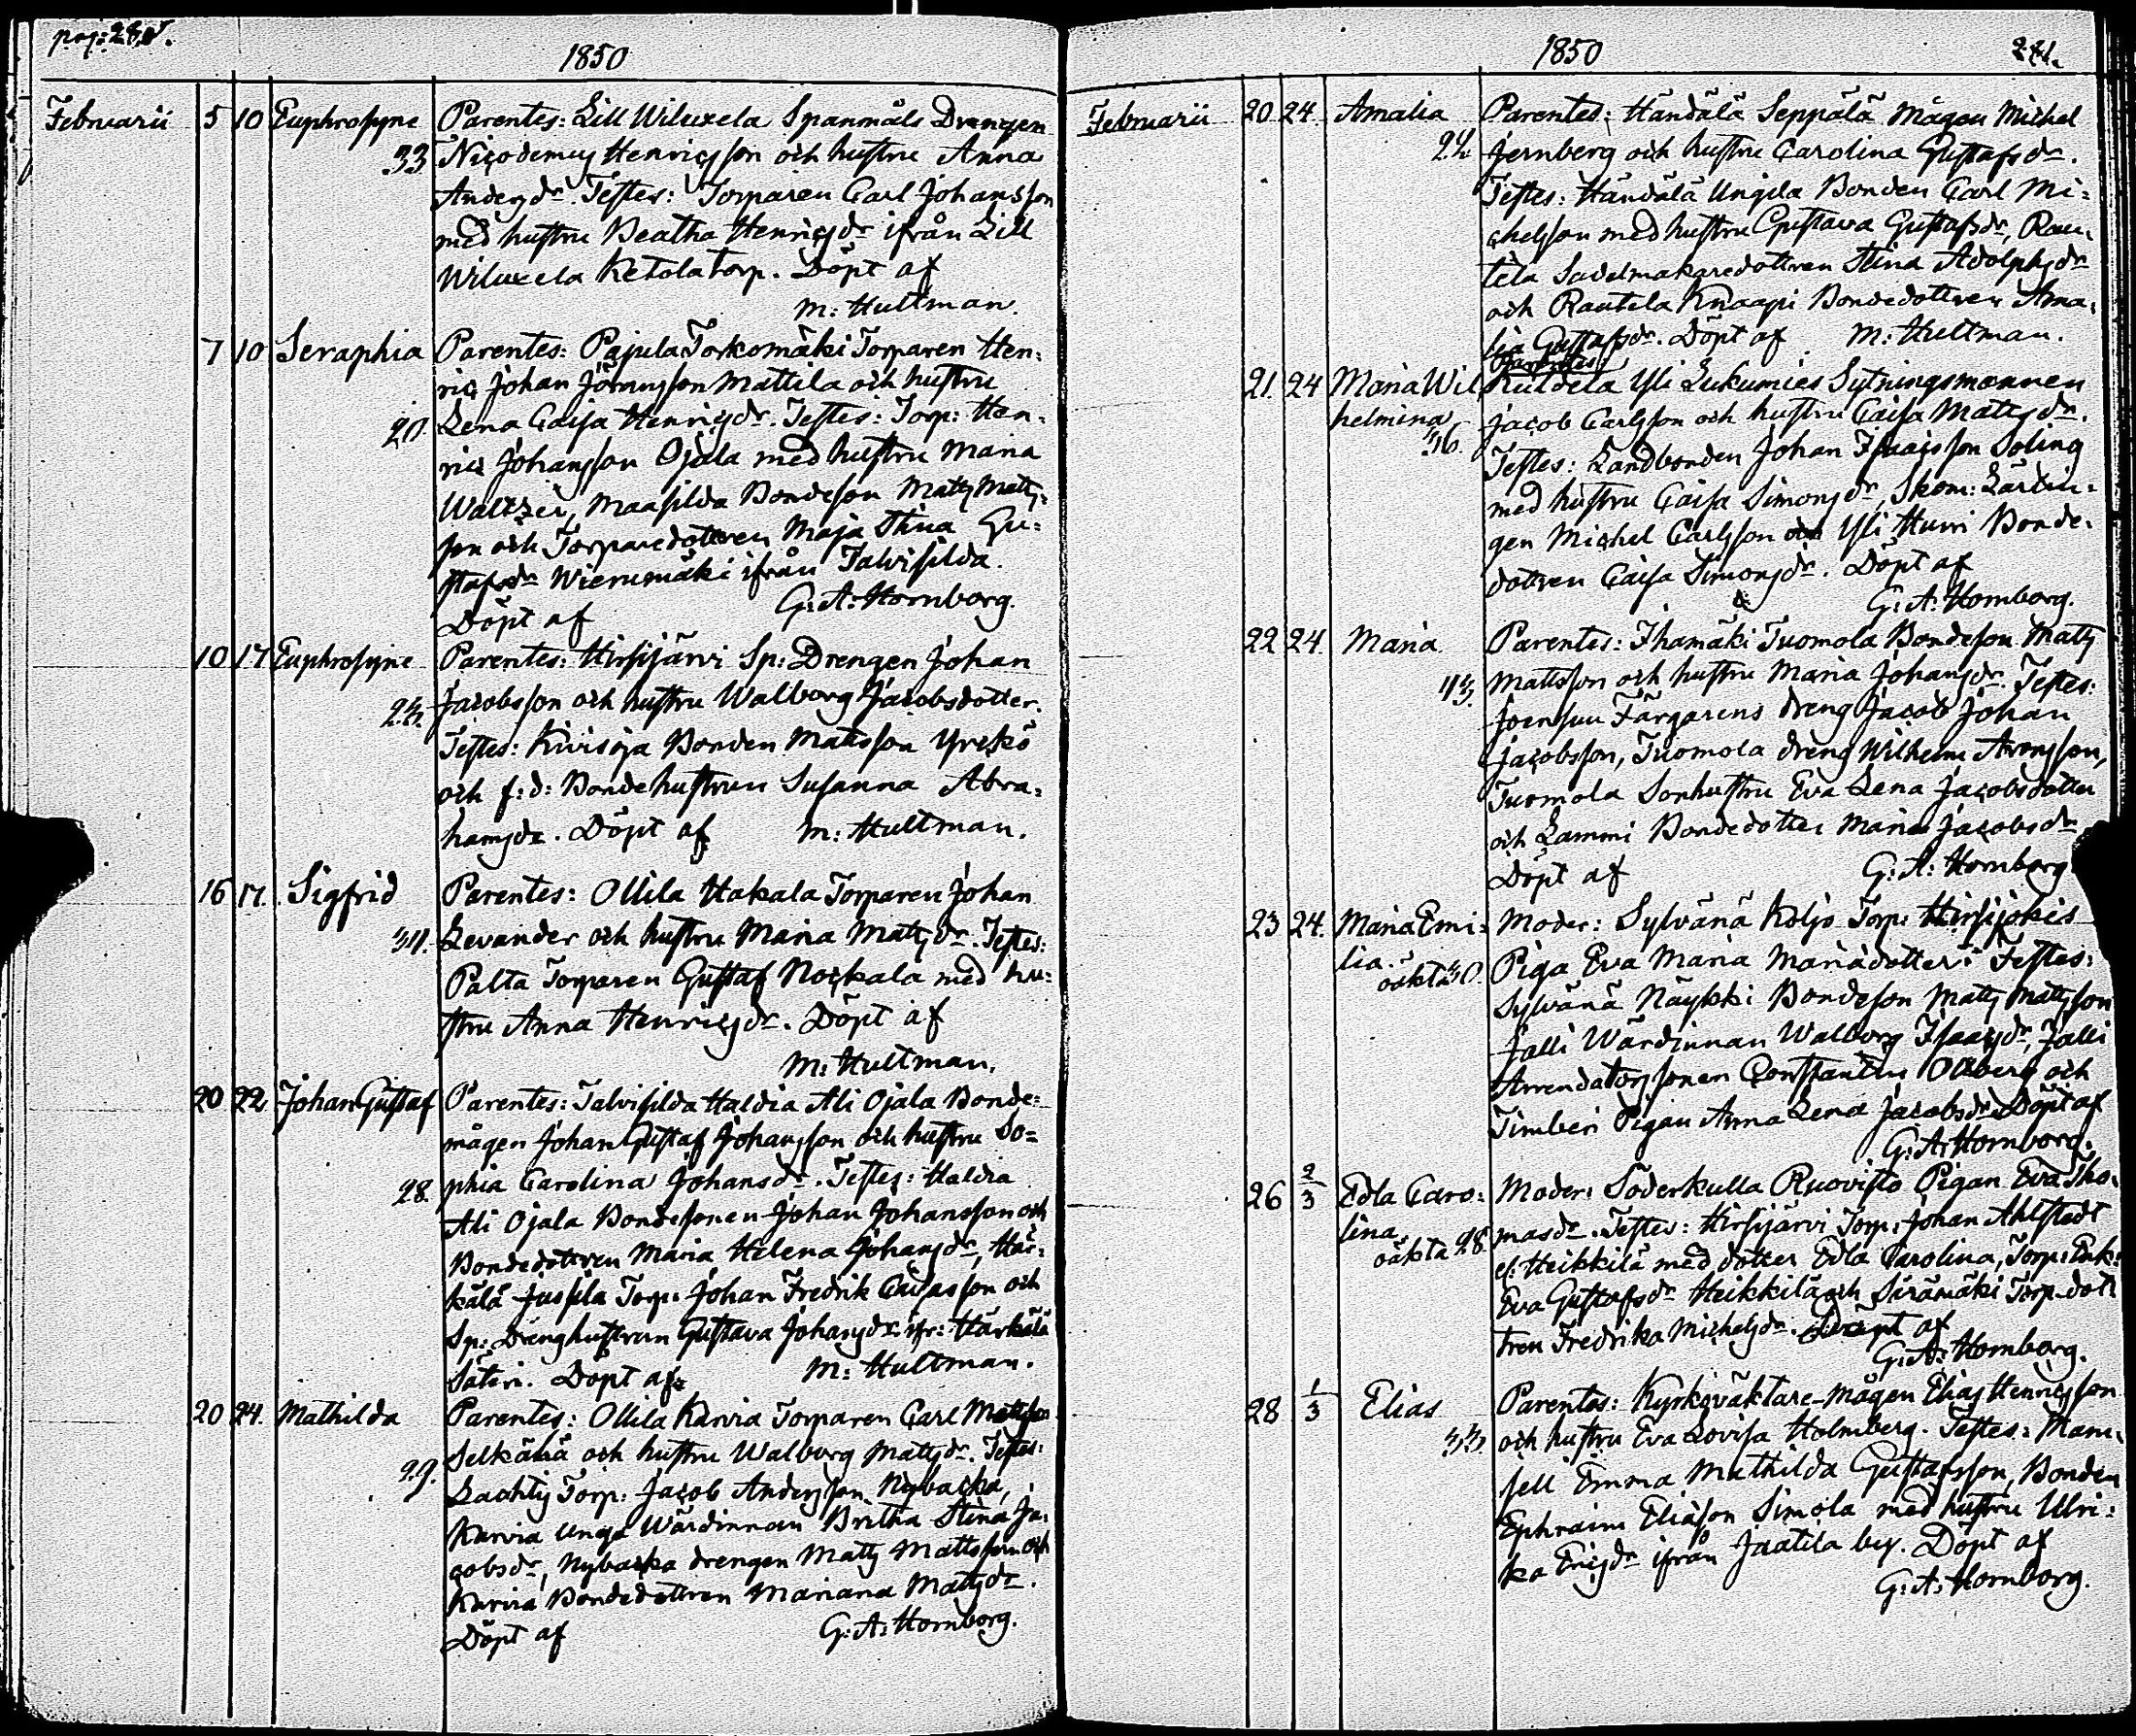 1850
Februarii 5 10 Euphrosyne Parentes: Lill Wiluxela Spanmåls Drengen
33. Nicodemus Henricsson och hustru Anna
Andersdr. Testes: Torparen Carl Johansson
med hustru Beatha Henricsdr ifrån Lill
Wiluxela Ketola torp. Döpt af
M: Hultman.
7 10 Seraphia Parentes: Pajula Torkomäki Torparen Hen:
ric Johan Göransson Mattila och hustru
20. Lena Caisa Henricsdr. Testes: Torp: Hen:
ric Johansson Ojala med hustru Maria
Waltzer, Maasilda Bondeson Matts Matts:
son och Torparedottren Maja Stina Gu:
stafsdr Wierumäki ifrån Talvisilda.
Döpt af G: A: Hornborg.
10 17 Euphrosyne Parentes: Hirsijärvi Sp: Drengen Johan
23. Jacobsson och hustru Walborg Jacobsdotter.
Testes: Kivioja Bonden Mattsson Yrskö
och f: d: Bondehustrun Susanna Abra:
hamsdr. Döpt af M: Hultman.
16 17. Sigfrid Parentes: Ollila Hakala Torparen Johan
34. Levander och hustru Maria Mattsdr. Testes:
Palta Torparen Gustaf Nockala med hu:
stru Anna Henricsdr. Döpt af
M: Hultman.
20 22 Johan Gustaf Parentes: Talvisilda Haldia Ali Ojala Bonde:
mågen Johan Gustaf Johansson och hustru So=
28. phia Carolina Johansdr. Testes: Haldia
Ali Ojala Bondesonen Johan Johansson och
Bondedottren Maria Helena Johansdr, Här:
kälä Jussila Torp: Johan Fredrik och
Sp: Drenghustrun Gustava Johansdr ifr: Härkälä
Säteri. Döpt af M: Hultman.
20 24. Mathilda Parentes: Ollila Karvia Torparen Carl Mattsson
29. Selkälä och hustru Walborg Mattsdr. Testes:
Lachtis Torp: Jacob Andersson Nybacka,
Karvia Unga Wärdinnan Britha Stina Ja:
cobsdr, Nybacka drengen Matts Mattsson och
Karvia Bondedottren Mariana Mattsdr.
Döpt af G: A: Hornborg.
1850 281.
Februarii 20. 24. Amalia Parentes: Händälä Seppälä Mågen Michel
22. Jernberg och hustru Carolina Gustafsdr.
Testes: Händälä Ungila Bonden Carl Mi:
chelsson med hustru Gustava Gustafsdr, Rau:
tela Sadelmakaredottren Stina Adolphsdr
och Rautela Knaapi Bondedottren Ama:
lia Gustafsdr. Döpt af M: Hultman.
Parentes:
21. 24 Maria Wil Kuldela Yli Lukumies Sytningsmannen
helmina 36. Jacob Carlsson och hustru Caisa Mattsdr.
Testes: Landbonden Johan Isaacsson Soling
med hustru Caisa Simonsdr, Skom: Lärlin:
gen Michel Carlsson och Yli Hurri Bonde:
dottren Caisa Simonsdr. Döpt af
G: A: Hornborg.
22 24. Maria. Parentes: Ihamäki Tuomola Bondeson Matts
43. Mattsson och hustru Maria Johansdr. Testes:
Joensuu Färgarens dreng Jacob Johan
Jacobsson, Tuomola dreng Wilhelm Aronsson,
Tuomola Sonhustru Eva Lena Jacobsdotter
och Lammi Bondedotter Maria Jacobsdr
Döpt af G: A: Hornborg
23 24. Maria Emi: Moder: Sylvänä Koljo Torp: Hirsijokis
lia. oäkta 30. Piga Eva Maria Mariädotter. Testes:
Sylvänä Näykki Bondeson Matts Mattsson
Jalli Wärdinnan Walborg Isaacsdr, Jalli
Arrendatorssonen Constantin Ollberg och
Timberi Pigan Anna Lena Jacobsdr. Döpt af
G: A: Hornborg.
26 2/3 Edla Caro: Moder: Söderkulla Ruovisto Pigan Eva Tho:
lina. oäkta 28. masdr. Testes: Hirsijärvi Torp: Johan Ahlstedt
el: Heikkilä med dotter Edla Carolina, Torp: Enk:
Eva Gustafsdr Heikkilä och Särämäki Torp-dot
tren Fredrika Michelsdr. Döpt af
G: A: Hornborg.
28 1/3 Elias Parentes: Kyrkoväktare-Mågen Elias Henricsson
33. och hustru Eva Lovisa Holmberg. Testes: Mam:
sell Emma Mathilda Gustafsson, Bonden
Ephraim Eliasson Simola med hustru Ulri:
ka Ericsdr ifrån Jaatila by. Döpt af
G: A: Hornborg.